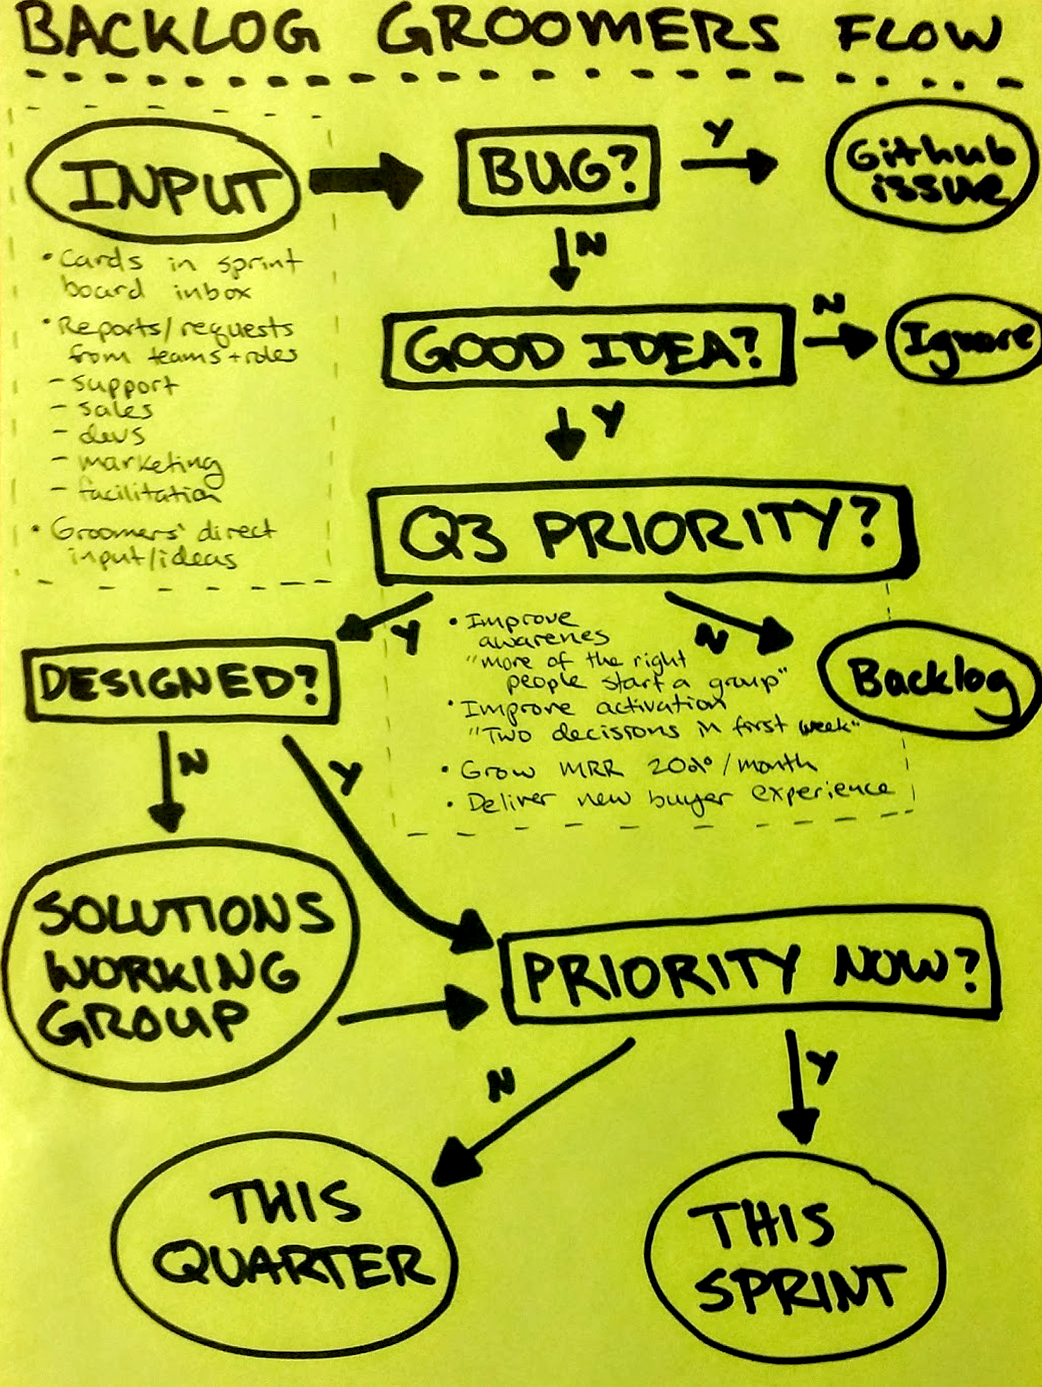 BACKLOG GROOMERS FLOW
INPUT
BUG?
Y
Github
issue
N
• Cards in sprint
board inbox
• Reports/requests
from teams + roles
- support
- sales
- devs
- marketing
- facilitation
• Groomers' direct
input/ideas
GOOD IDEA?
N
Ignore
Y
Q3 PRIORITY?
Y
N
• Improve
awarenes
"more of the right
people start a group"
• Improve activation
"Two decisions in first week"
• Grow MRR 20% /month
• Deliver new buyer experience
Backlog
DESIGNED?
N
Y
SOLUTIONS
WORKING
GROUP
PRIORITY NOW?
N
Y
THIS
QUARTER
THIS
SPRINT